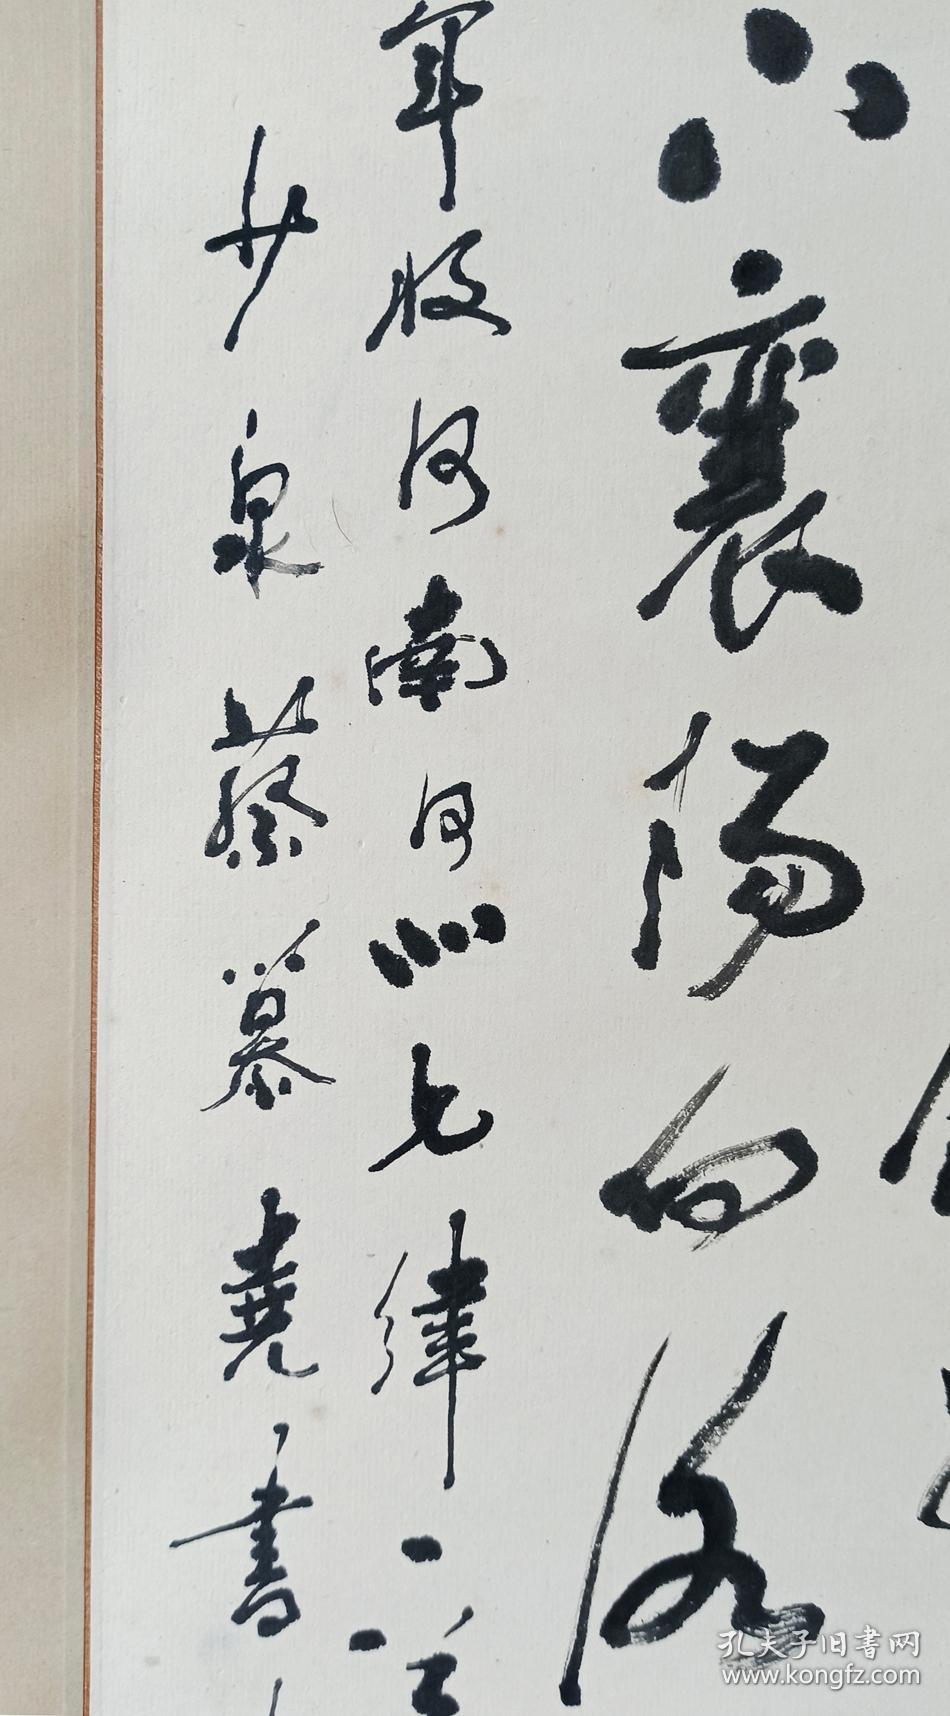 下襄阳向洛
军收河南河北七律一首
少泉蔡慕尧书
孔夫子旧書网
www.kongfz.com